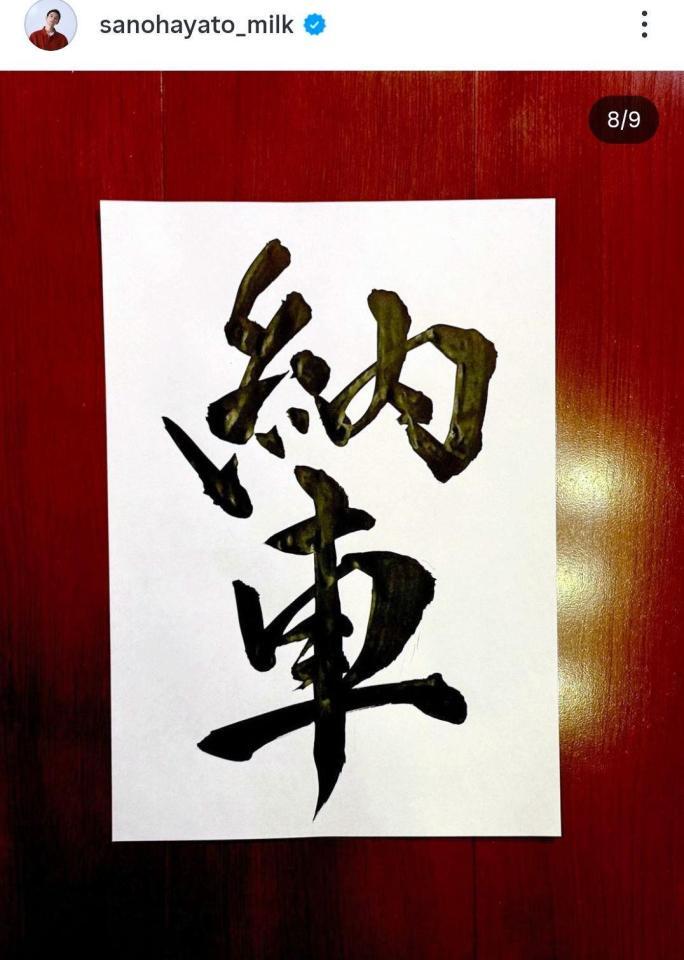 sanohayato_milk
8/9
納
車